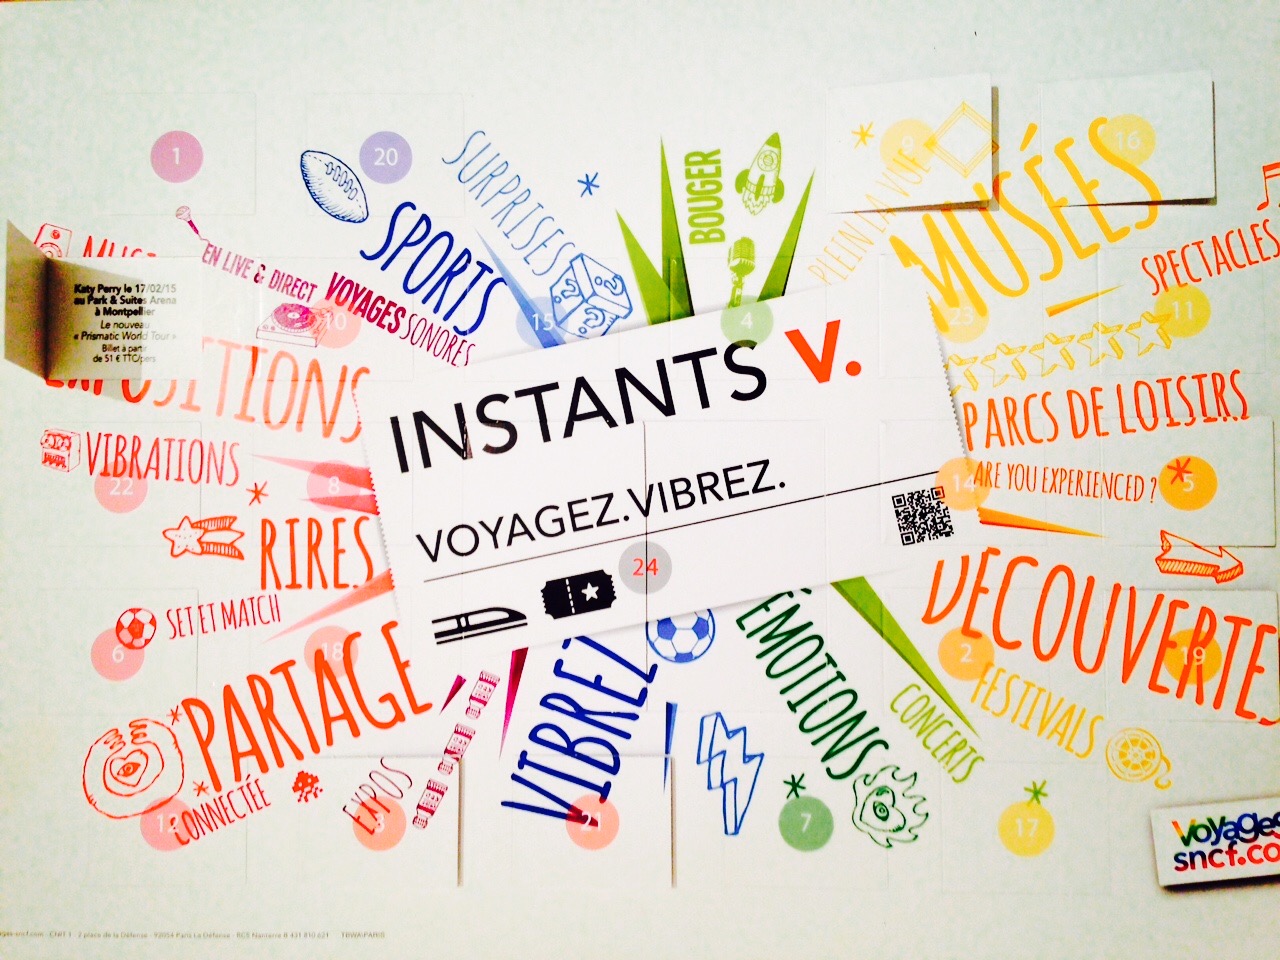 1
20
SURPRISES
SPORTS
BOUGER
PLEIN LA VUE
9
16
MUSÉES
SPECTACLES
EN LIVE & DIRECT
VOYAGES SONORES
10
15
4
23
11
Katy Perry le 17/02/15
au Park & Suites Arena
à Montpellier
Le nouveau
« Prismatic World Tour »
Billet à partir
de 51 € TTC/pers
EXPOSITIONS
INSTANTS V.
VOYAGEZ.VIBREZ.
24
PARCS DE LOISIRS
14
ARE YOU EXPERIENCED ?
5
VIBRATIONS
22
8
RIRES
SET ET MATCH
6
18
PARTAGE
CONNECTÉE
12
EXPOS
3
VIBREZ
21
ÉMOTIONS
7
CONCERTS
DÉCOUVERTE
2
19
FESTIVALS
17
voyages
sncf.co
CNIT 1 - 2 place de la Défense - 92054 Paris La Défense - RCS Nanterre B 431 810 621 TBWA\PARIS